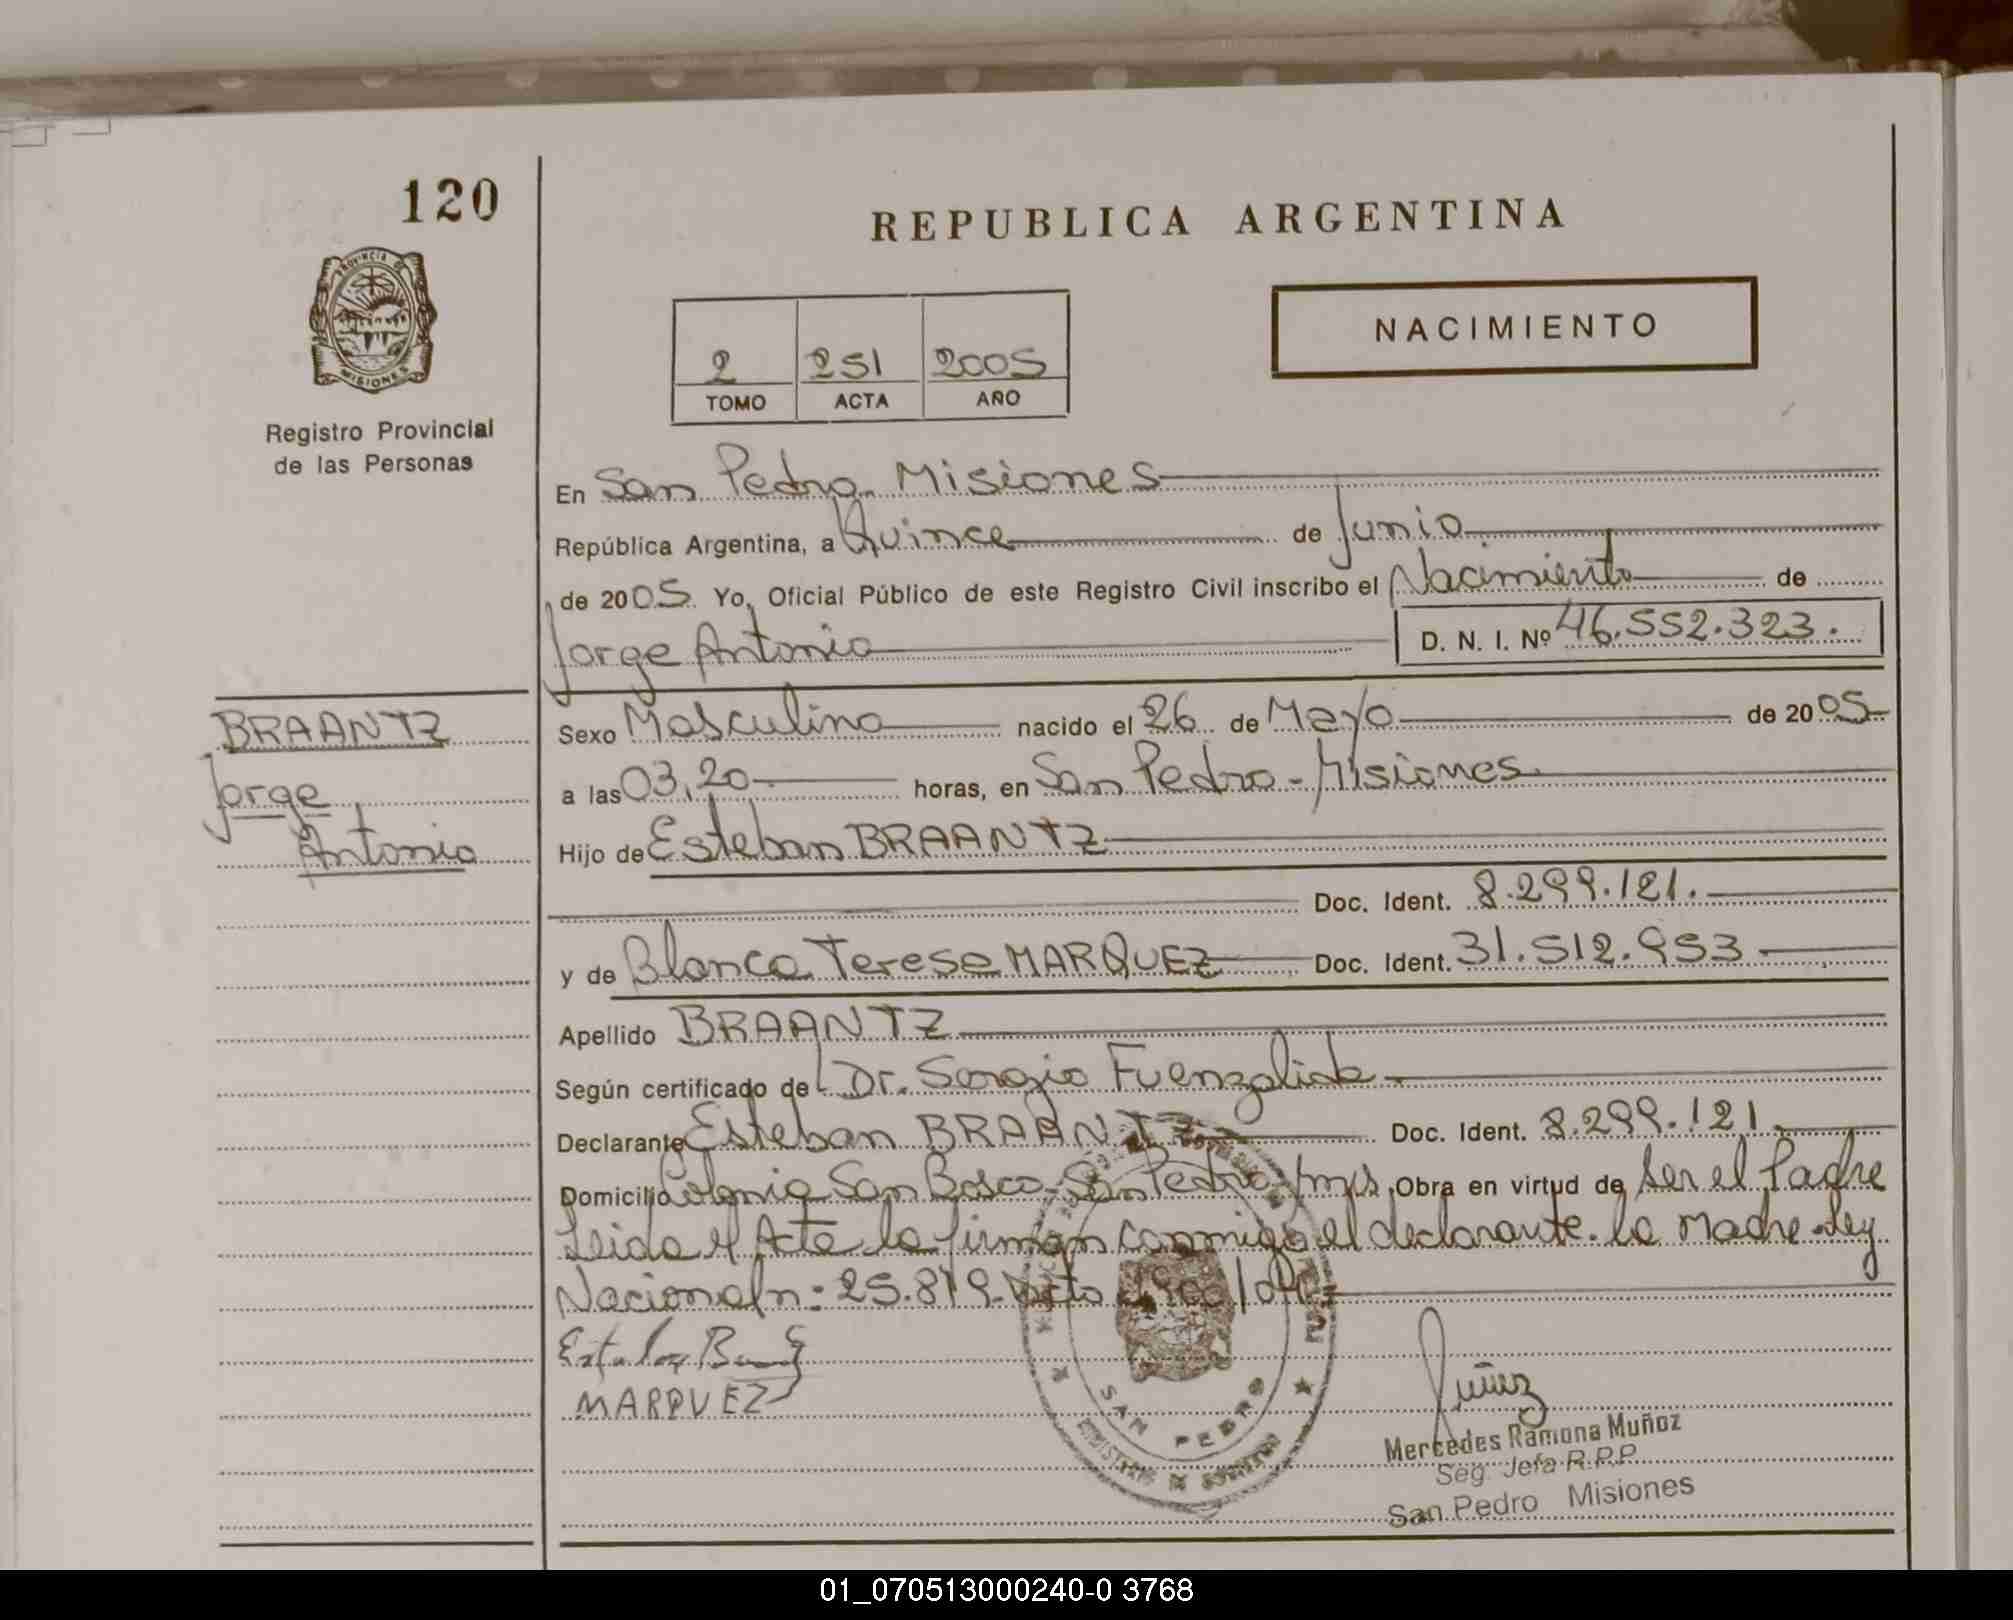 120
REPUBLICA ARGENTINA
PROVINCIA DE
MISIONES
Registro Provincial
de las Personas
NACIMIENTO
2 251 2005
TOMO ACTA AÑO
En San Pedro Misiones
República Argentina, a Quince de Junio
de 2005 Yo, Oficial Público de este Registro Civil inscribo el Nacimiento de
Jorge Antonio D. N. I. Nº 46.552.323.
BRAANTZ
Jorge
Antonio
Sexo Masculino nacido el 26 de Mayo de 2005
a las 03,20 horas, en San Pedro - Misiones
Hijo de Esteban BRAANTZ
Doc. Ident. 8.299.121.
y de Blanca Teresa MARQUEZ Doc. Ident. 31.512.953
Apellido BRAANTZ
Según certificado de Dr. Sergio Fuenzalida
Declarante Esteban BRAANTZ Doc. Ident. 8.299.121
Domicilio Colonia San Bosco - San Pedro - Mnes Obra en virtud de Ser el Padre
Leida el Acta la firman conmigo el declarante. la Madre. Ley
Nacional n: 25.819.
MARQUEZ
SAN PEDRO
Mercedes Ramona Muñoz
Seg. Jefa R.P.P.
San Pedro Misiones
01_070513000240-0 3768